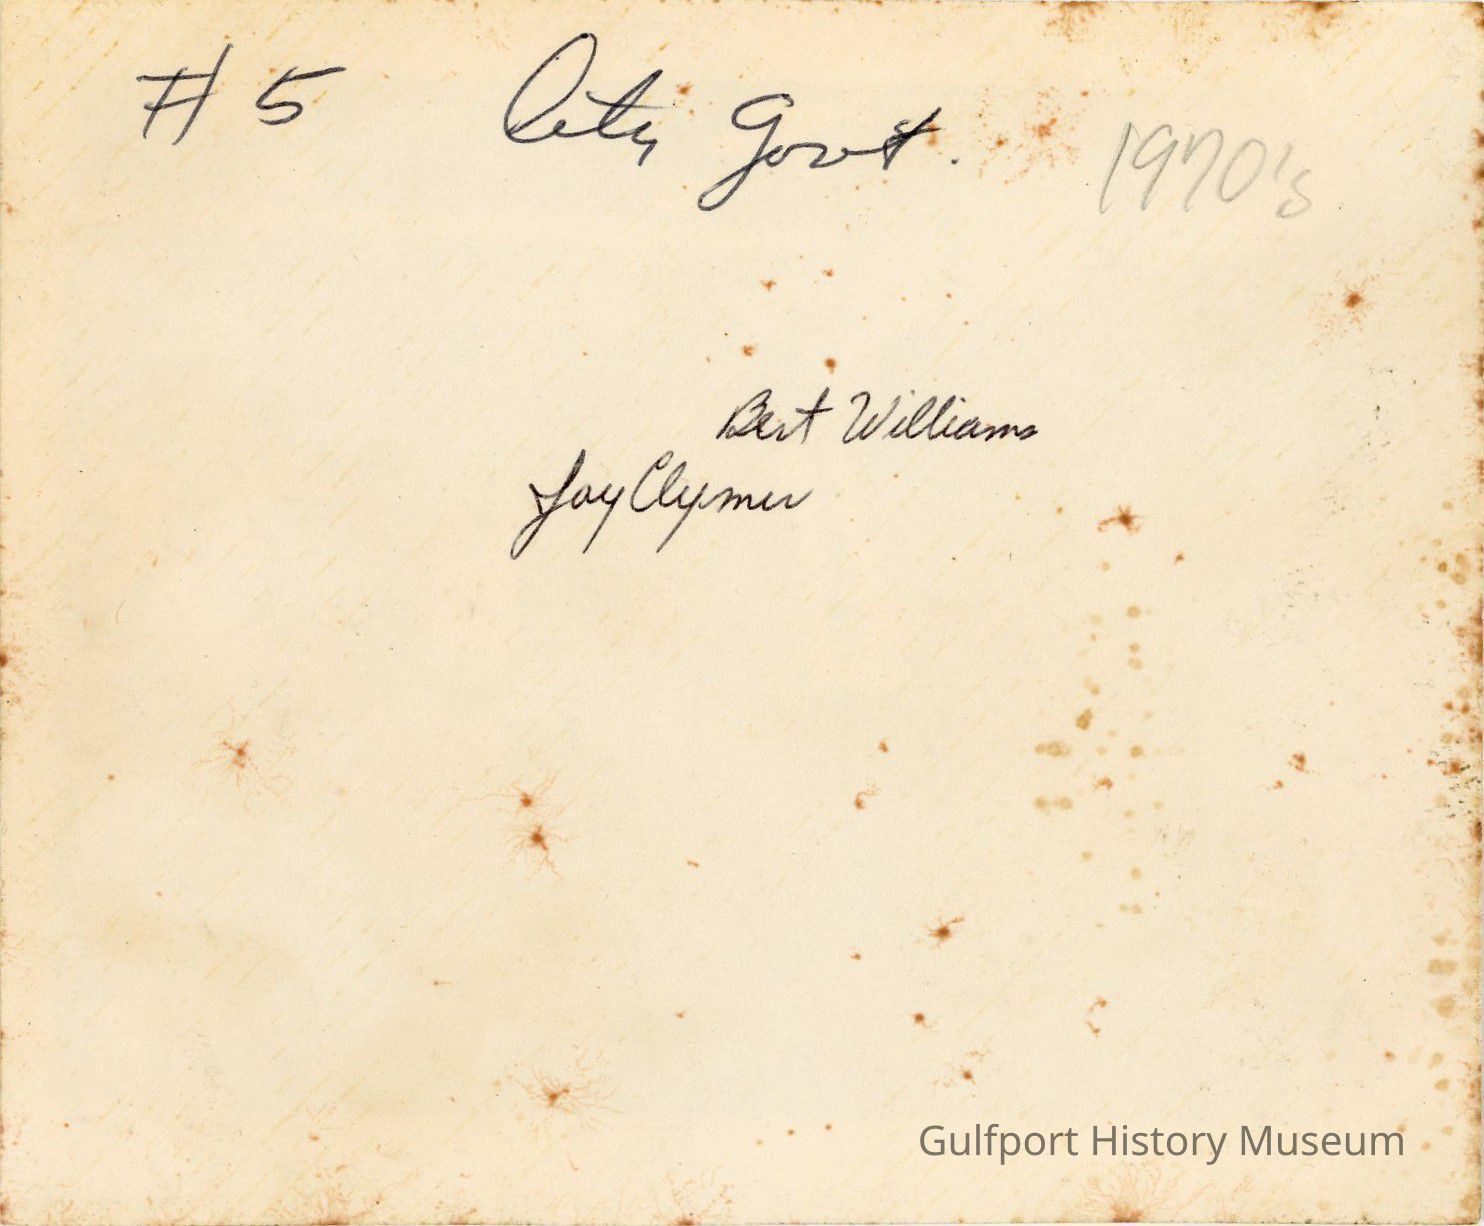 #5 City Govt. 1970's
Bert Williams
Jay Clymer
Gulfport History Museum